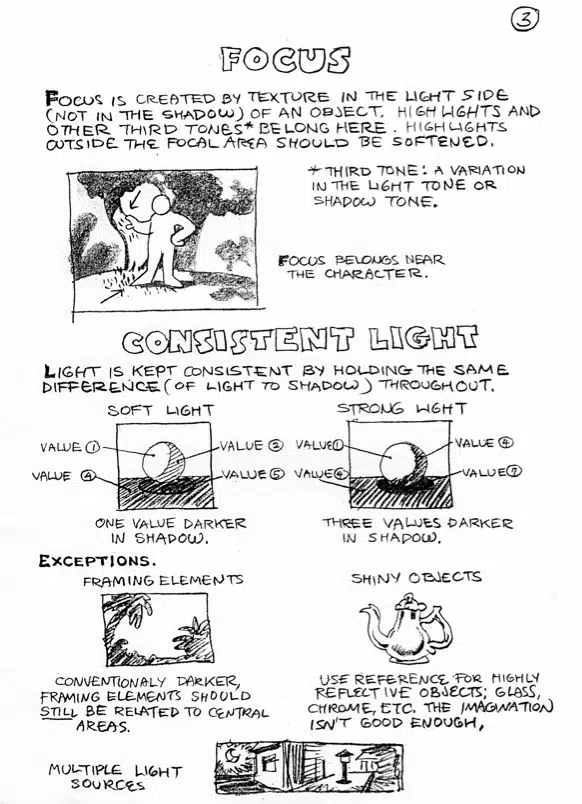 3
FOCUS
FOCUS IS CREATED BY TEXTURE IN THE LIGHT SIDE
(NOT IN THE SHADOW) OF AN OBJECT. HIGHLIGHTS AND
OTHER THIRD TONES* BELONG HERE. HIGHLIGHTS
OUTSIDE THE FOCAL AREA SHOULD BE SOFTENED.
* THIRD TONE: A VARIATION
IN THE LIGHT TONE OR
SHADOW TONE.
FOCUS BELONGS NEAR
THE CHARACTER.
CONSISTENT LIGHT
LIGHT IS KEPT CONSISTENT BY HOLDING THE SAME
DIFFERENCE (OF LIGHT TO SHADOW) THROUGHOUT.
SOFT LIGHT
VALUE 1
VALUE 2
VALUE 4
VALUE 5
ONE VALUE DARKER
IN SHADOW.
STRONG LIGHT
VALUE 1
VALUE 4
VALUE 4
VALUE 7
THREE VALUES DARKER
IN SHADOW.
EXCEPTIONS.
FRAMING ELEMENTS
CONVENTIONALY DARKER,
FRAMING ELEMENTS SHOULD
STILL BE RELATED TO CENTRAL
AREAS.
SHINY OBJECTS
USE REFERENCE FOR HIGHLY
REFLECTIVE OBJECTS; GLASS,
CHROME, ETC. THE IMAGINATION
ISN'T GOOD ENOUGH,
MULTIPLE LIGHT
SOURCES